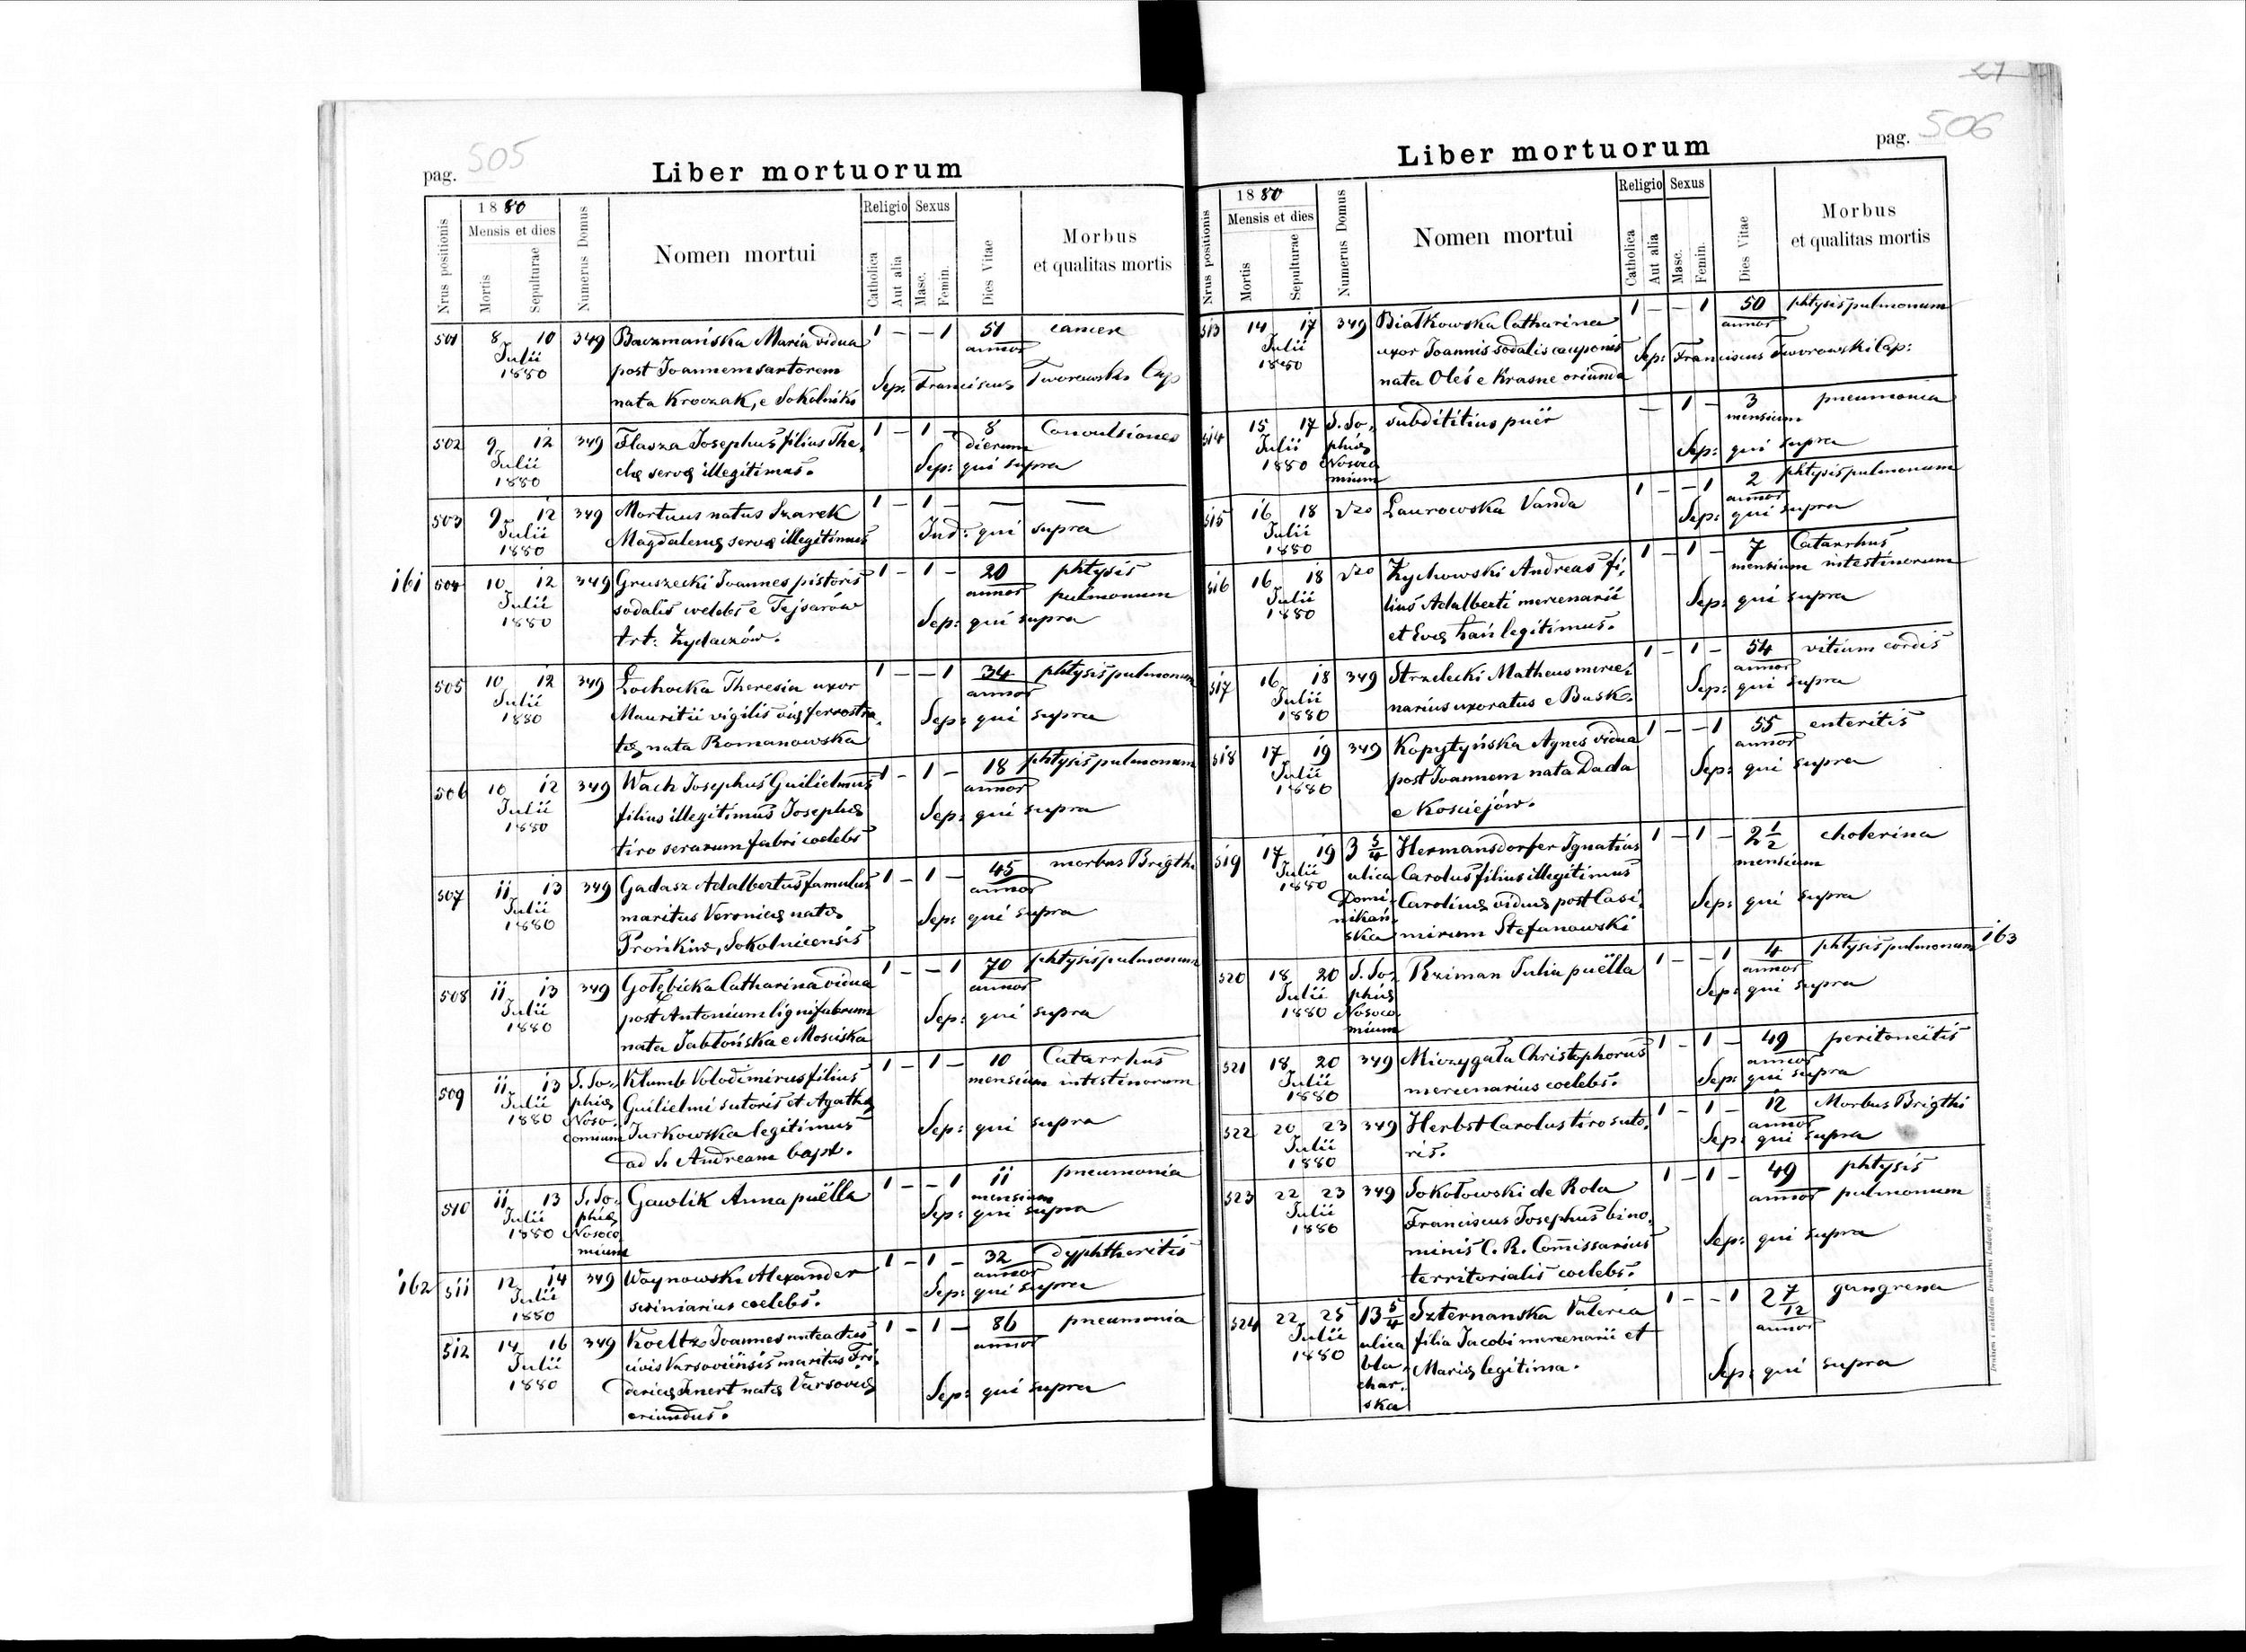 pag. 505
Liber mortuorum
Nrus positionis
1880
Mensis et dies
Mortis
Sepulturae
Numerus Domus
Nomen mortui
Religio
Catholica
Aut alia
Sexus
Masc.
Femin.
Dies Vitae
Morbus
et qualitas mortis
501 8 10 349 Baczmańska Maria vidua 1 – – 1 51 cancer
Julii post Joannem sartorem annor
1880 nata Kroczak, e Sokolniki Sep: Franciscus Tworowski Cap
502 9 12 349 Flasza Josephus filius The, 1 – 1 – 8 Convulsiones
Julii clę servę illegitimus. dierum
1880 Sep: qui supra
503 9 12 349 Mortuus natus Szarek 1 – 1 – — —
Julii Magdalenę servę illegitimus Ind: qui supra
1880
161 504 10 12 349 Gruszecki Joannes pistoris 1 – 1 – 20 phtysis
Julii sodalis coelebs e Tejsarów annor pulmonum
1880 trt: Zydaczów. Sep: qui supra
505 10 12 349 Łochocka Theresia uxor 1 – – 1 34 phtysis pulmonum
Julii Mauritii vigilis vię ferrostra, annor
1880 tę nata Romanowska Sep: qui supra
506 10 12 349 Wach Josephus Guilielmus 1 – 1 – 18 phtysis pulmonum
Julii filius illegitimus Josephę annor
1880 tiro serarum fabri coelebs Sep: qui supra
507 11 13 349 Gadasz Adalbertus famulus 1 – 1 – 45 morbus Brigthi
Julii maritus Veronicę natę annor
1880 Prońkiw, Sokolnicensis Sep: qui supra
508 11 13 349 Gołębicka Catharina vidua 1 – – 1 70 phtysis pulmonum
Julii post Antonium lignifabrum annor
1880 nata Jabłońska e Mosciska Sep: qui supra
509 11 13 S. So, Klumb Volodimirus filius 1 – 1 – 10 Catarrhus
Julii phię Guilielmi sutoris et Agathę mensium intestinorum
1880 Noso, Jurkowska legitimus Sep: qui supra
comium ad S. Andream bapt.
510 11 13 S. So, Gawlik Anna puëlla 1 – – 1 11 pneumonia
Julii phię mensium
1880 Nosoco, Sep: qui supra
mium
162 511 12 14 349 Woynowski Alexander 1 – 1 – 32 dyphtheritis
Julii scriniarius coelebs. annor
1880 Sep: qui supra
512 14 16 349 Koeltz Joannes anteactus 1 – 1 – 86 pneumonia
Julii civis Varsoviënsis maritus Fri, annor
1880 dericę Enert natę Varsovię Sep: qui supra
oriundus.
27
pag. 506
Liber mortuorum
Nrus positionis
1880
Mensis et dies
Mortis
Sepulturae
Numerus Domus
Nomen mortui
Religio
Catholica
Aut alia
Sexus
Masc.
Femin.
Dies Vitae
Morbus
et qualitas mortis
513 14 17 349 Białkowska Catharina 1 – – 1 50 phtysis pulmonum
Julii uxor Joannis sodalis cauponis annor
1880 nata Oleś e Krasne oriunda Sep: Franciscus Tworowski Cap:
514 15 17 S. So, subdititius puër – 1 – 3 pneumonia
Julii phię mensium
1880 Nosoco Sep: qui supra
mium
515 16 18 Laurowska Vanda 1 – – 1 2 phtysis pulmonum
Julii annor
1880 Sep: qui supra
516 16 18 Zychowski Andreas fi, 1 – 1 – 7 Catarrhus
Julii lius Adalberti mercenarii mensium intestinorum
1880 et Evę Łań legitimus. Sep: qui supra
517 16 18 349 Strzelecki Matheus merce, 1 – 1 – 54 vitium cordis
Julii narius uxoratus e Busk. annor
1880 Sep: qui supra
518 17 19 349 Kopytyńska Agnes vidua 1 – – 1 55 enteritis
Julii post Joannem nata Dada annor
1880 e Kosciejów. Sep: qui supra
519 17 19 3 5/4 Hermansdorfer Ignatius 1 – 1 – 2 1/2 cholerina
Julii ulica Carolus filius illegitimus mensium
1880 Domi, Carolinę viduę post Casi, Sep: qui supra
nikań, mirum Stefanowski
ska
520 18 20 S. So, Rziman Julia puëlla 1 – – 1 4 phtysis pulmonum 163
Julii phię annor
1880 Nosoco, Sep: qui supra
mium
521 18 20 349 Miczygała Christophorus 1 – 1 – 49 peritoneïtis
Julii mercenarius coelebs. annor
1880 Sep: qui supra
522 20 23 349 Herbst Carolus tiro suto, 1 – 1 – 12 Morbus Brigthi
Julii ris. annor
1880 Sep: qui supra
523 22 23 349 Sokołowski de Rola 1 – 1 – 49 phtysis
Julii Franciscus Josephus bino, annor pulmonum
1880 minis C. R. Comissarius Sep: qui supra
territorialis coelebs.
524 22 25 13 5/4 Szternanska Valeria 1 – – 1 2 7/12 gangrena
Julii ulica filia Jacobi mercenarii et annor
1880 bla, Marię legitima. Sep: qui supra
char,
ska